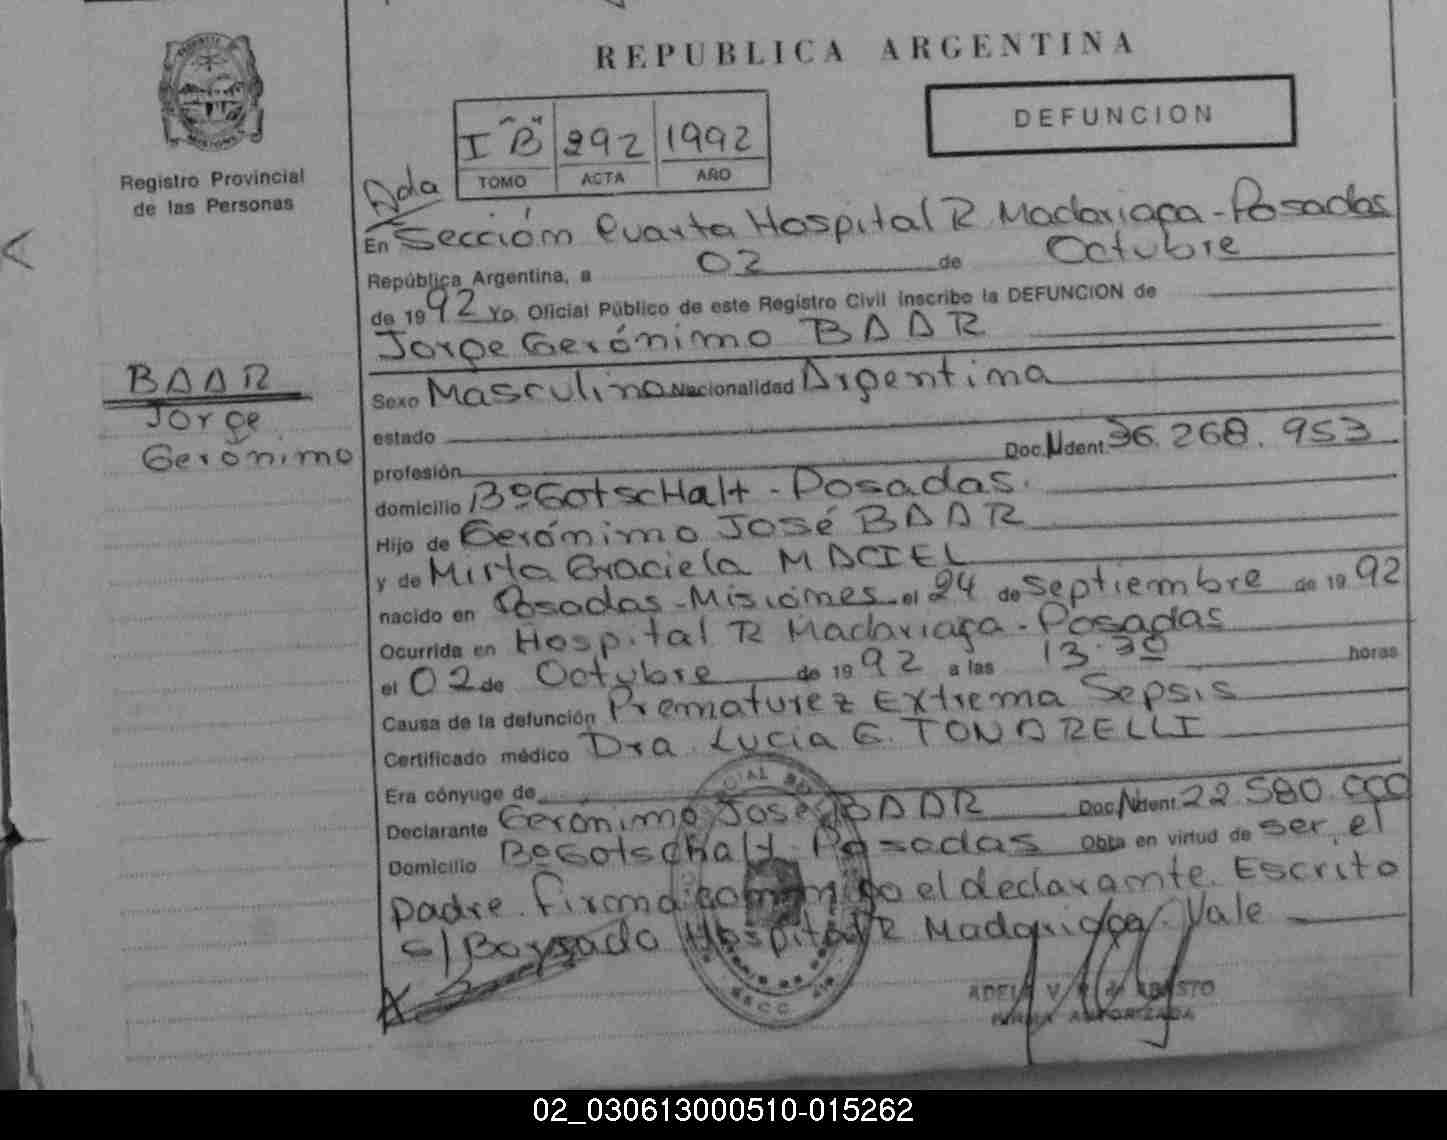 REPUBLICA ARGENTINA
DEFUNCION
I "B" 292 1992
TOMO ACTA AÑO
Registro Provincial
de las Personas
Ada
En Sección Cuarta Hospital R Madariaga - Posadas
República Argentina, a 02 de Octubre
de 1992 Yo, Oficial Público de este Registro Civil inscribo la DEFUNCION de
Jorge Gerónimo BAAR
BAAR
Jorge
Gerónimo
Sexo Masculino Nacionalidad Argentina
estado
profesión Doc. N Ident. 36.268.953
domicilio Bº Gotschalt - Posadas.
Hijo de Gerónimo José BAAR
y de Mirta Graciela MACIEL
nacido en Posadas - Misiones el 24 de Septiembre de 1992
Ocurrida en Hospital R Madariaga - Posadas
el 02 de Octubre de 1992 a las 13:30 horas
Causa de la defunción Prematurez Extrema Sepsis
Certificado médico Dra. Lucia E. TONARELLI
Era cónyuge de
Declarante Gerónimo José BAAR Doc. N Ident. 22.580.000
Domicilio Bº Gotschalt - Posadas Obra en virtud de ser el
padre. Firma conmigo el declarante. Escrito
s/ Borrado Hospital R Madariaga. Vale
FIRMA AUTORIZADA
02_030613000510-015262